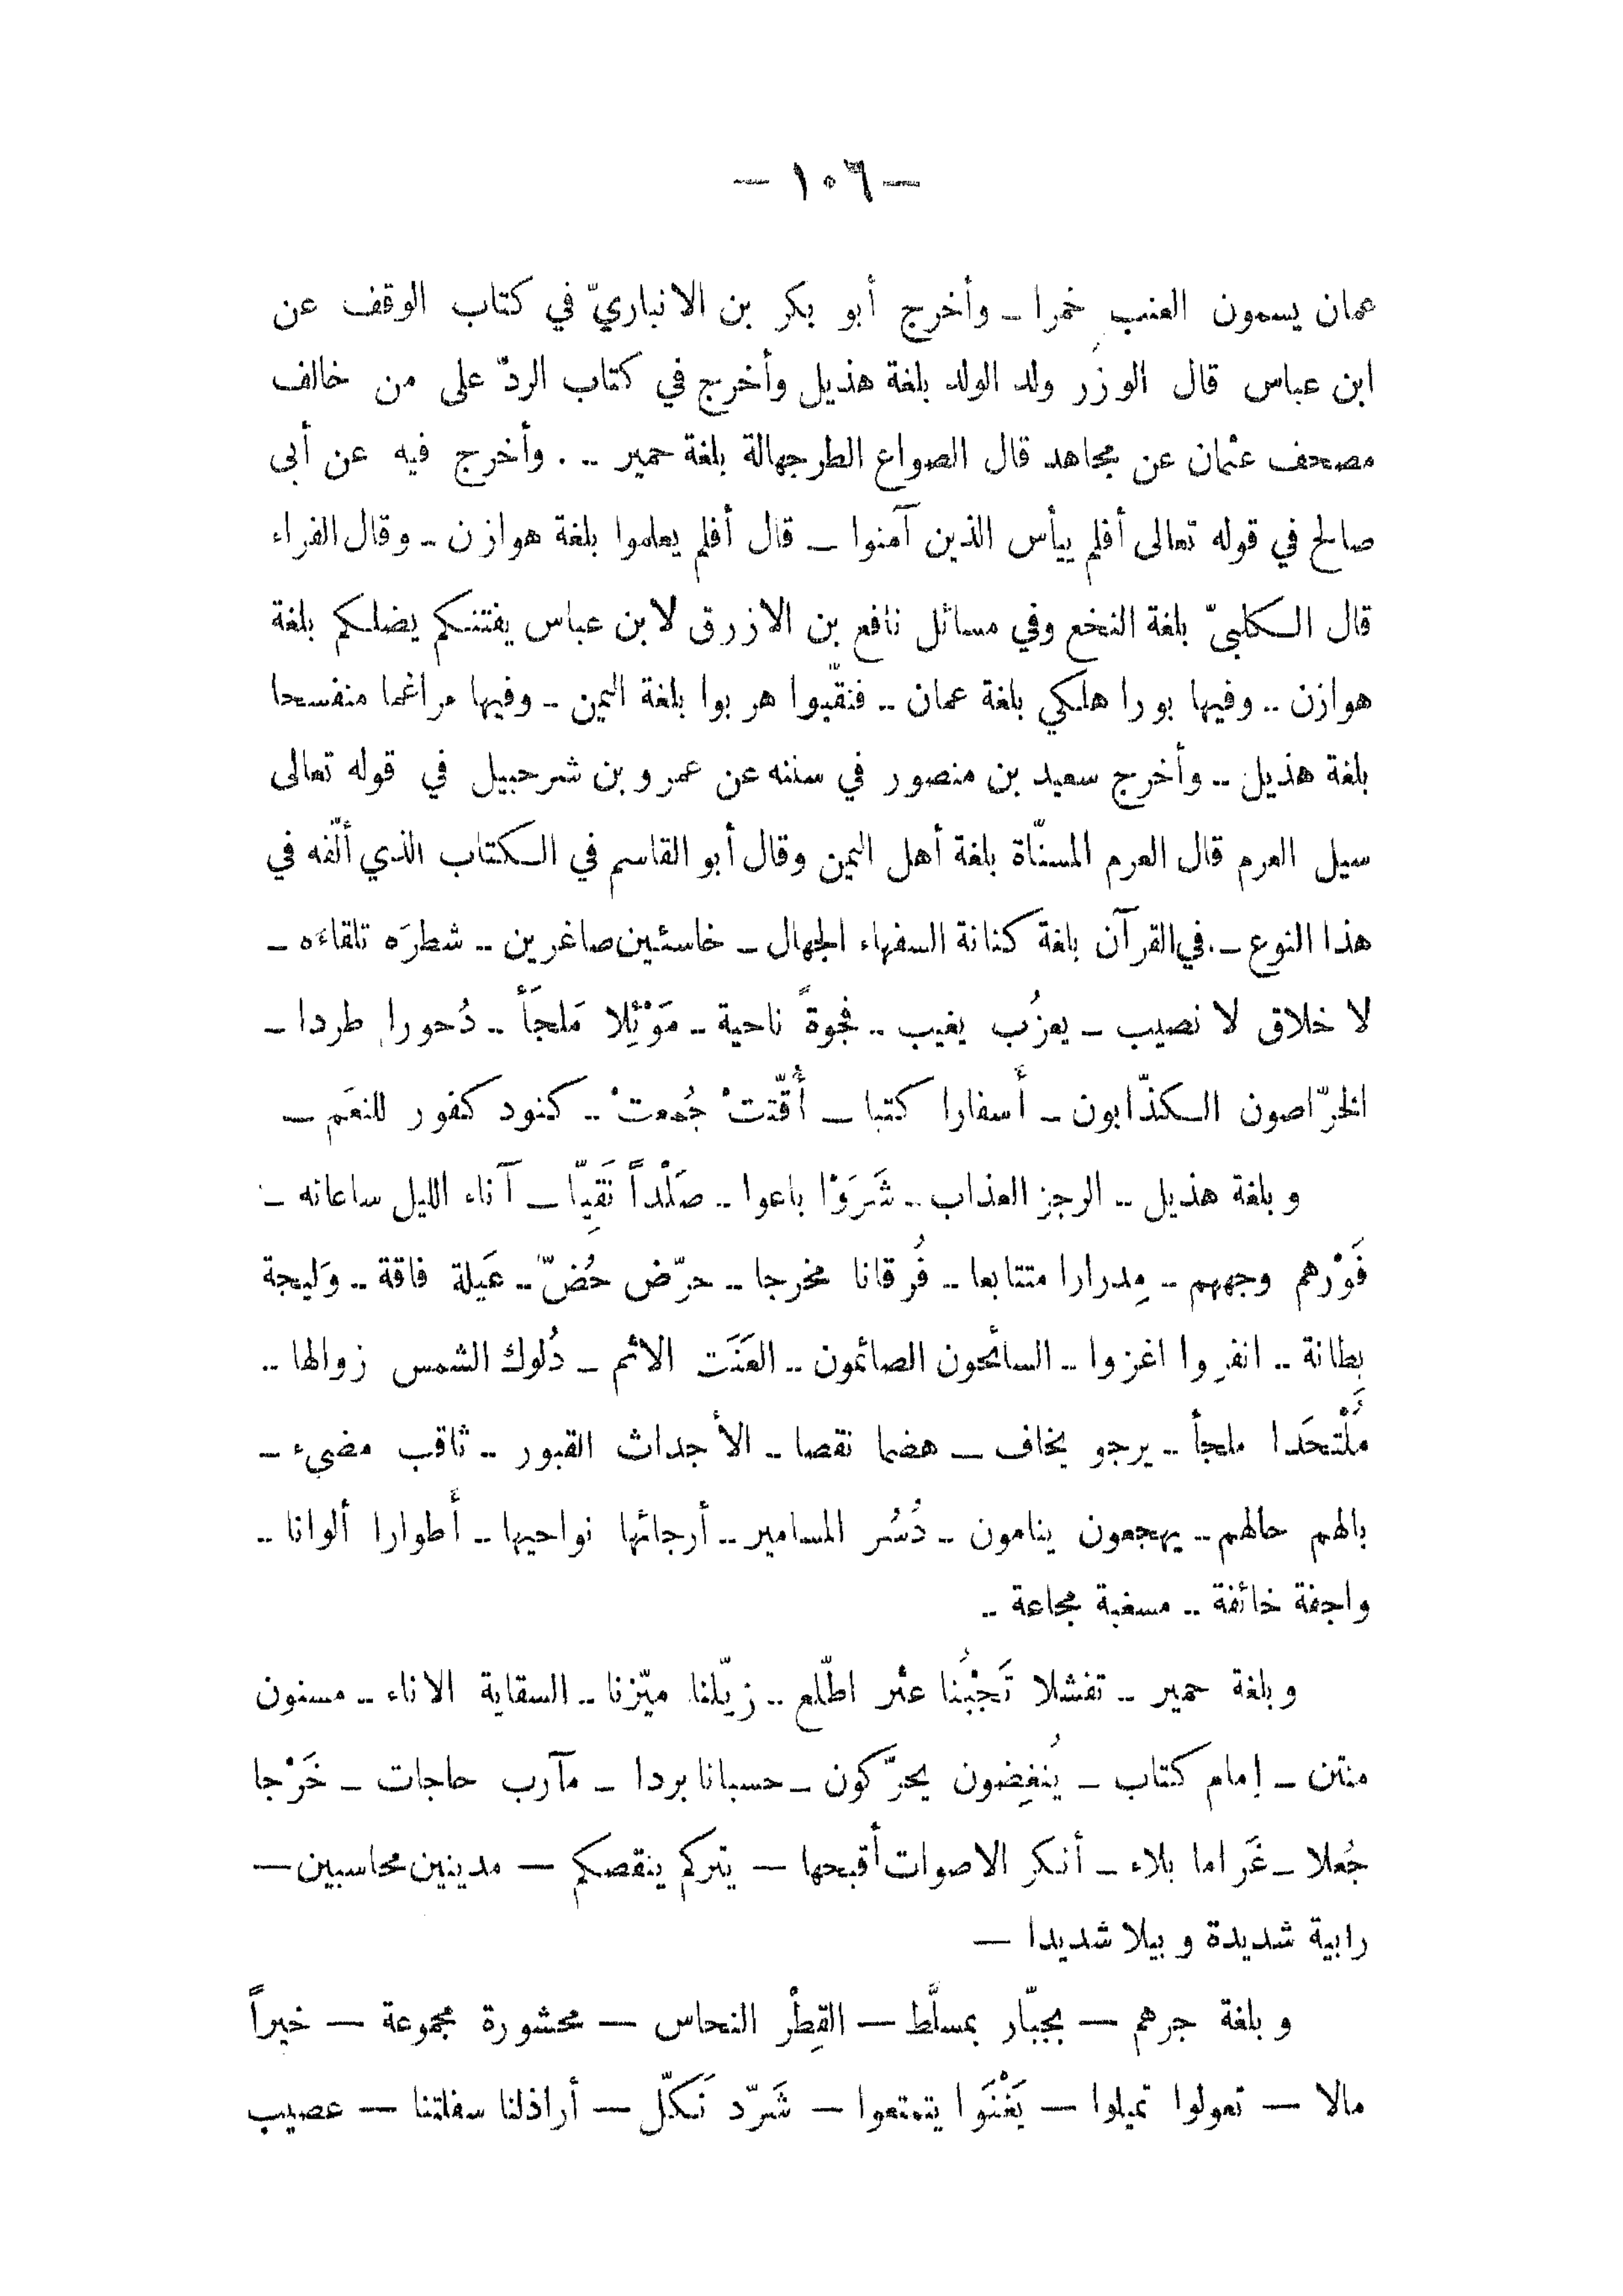 — ١٠٦ —
عمان يسمون العنب خمرا ـ وأخرج أبو بكر بن الانباريّ في كتاب الوقف عن
ابن عباس قال الوزَر ولد الولد بلغة هذيل وأخرج في كتاب الردّ على من خالف
مصحف عثمان عن مجاهد قال الصواع الطرجهالة بلغة حمير .. . وأخرج فيه عن أبى
صالح في قوله تعالى أفلم ييأس الذين آمنوا ـ قال أفلم يعلموا بلغة هوازن ـ وقال الفراء
قال الكلبىّ بلغة النخع وفي مسائل نافع بن الازرق لابن عباس يفتنكم يضلكم بلغة
هوازن .. وفيها بورا هلكي بلغة عمان .. فنقّبوا هربوا بلغة اليمن .. وفيها مراغما منفسحا
بلغة هذيل .. وأخرج سعيد بن منصور في سننه عن عمرو بن شرحبيل في قوله تعالى
سيل العرم قال العرم المسنّاة بلغة أهل اليمن وقال أبو القاسم في الكتاب الذي ألّفه في
هذا النوع ـ. في القرآن بلغة كنانة السفهاء الجهال ـ خاسئين صاغرين .. شطرَه تلقاءَه ـ
لا خلاق لا نصيب ـ يعزُب يغيب .. فجوةً ناحية ـ مَوْئِلا مَلجَأً .. دُحورا طردا ـ
الخرّاصون الكذّابون ـ أَسفارا كتبا ـ أُقّتتْ جُمعتْ .. كنود كفور للنعَم ـ
وبلغة هذيل .. الرجز العذاب .. شَرَوْا باعوا .. صَلْداً نَقِيّا ـ آناء الليل ساعاته ـ
فَوْرهم وجههم .. مِدرارا متتابعا .. فُرقانا مخرجا .. حرّض حُضّ .. عَيلة فاقة .. وَليجة
بطانة .. انفِروا اغزوا .. السائحون الصائمون .. العَنَت الاثم ـ دُلوك الشمس زوالها ..
مُلْتحَدا ملجأ .. يرجو يخاف ـ هضما نقصا ـ الأجداث القبور .. ثاقب مضيء ـ
بالهم حالهم .. يهجعون ينامون .. دُسُر المسامير .. أرجائها نواحيها ـ أَطوارا ألوانا ..
واجفة خائفة .. مسغبة مجاعة ..
وبلغة حمير .. تفشلا تَجْبُنا عثر اطّلع .. زيّلنا ميّزنا .. السقاية الاناء .. مسنون
منتن ـ إمام كتاب ـ يُنغِضون يحرّكون ـ حسبانا بردا ـ مآرب حاجات ـ خَرْجا
جُعلا ـ غَراما بلاء ـ أنكر الاصوات أقبحها — يتركم ينقصكم — مدينين محاسبين —
رابية شديدة وبيلا شديدا —
وبلغة جرهم — بجبّار بمسلَّط — القِطْر النحاس — محشورة مجموعة — خيراً
مالا — تعولوا تميلوا — يَغْنَوا يتمتعوا — شَرّد نَكّل — أراذلنا سفلتنا — عصيب